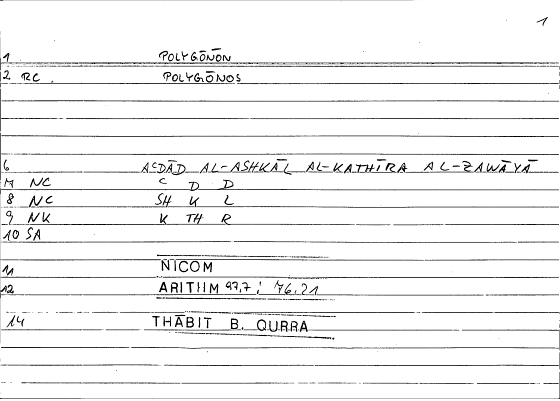 1
1 POLYGŌNŌN
2 RC. POLYGŌNOS
6 AᶜDĀD AL-ASHKĀL AL-KATHĪRA AL-ZAWĀYĀ
M NC C D D
8 NC SH K L
9 NK K TH R
10 SA
11 NICOM
12 ARITHM 97,7; 76.21
14 THĀBIT B. QURRA